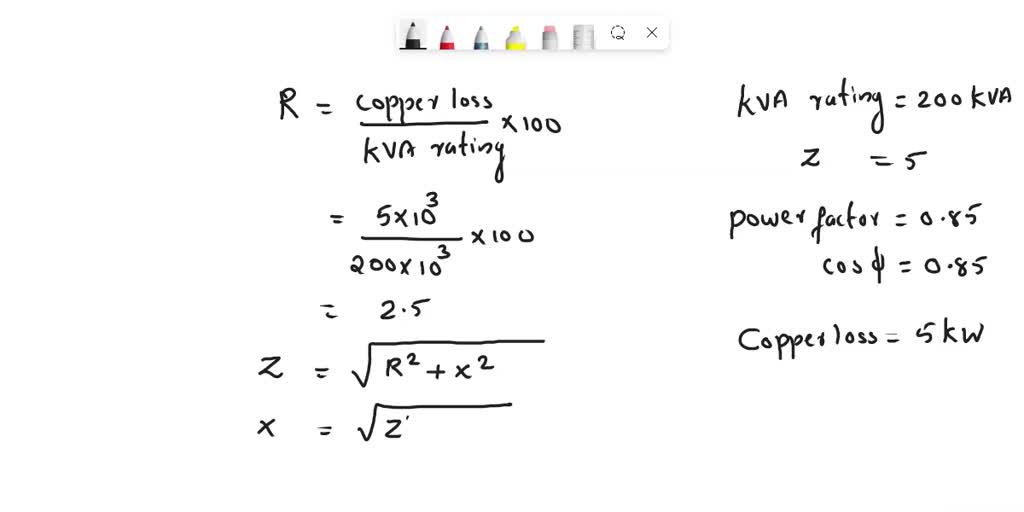 R = copper loss / kVA rating × 100
= 5×10³ / 200×10³ ×100
= 2.5
Z = √R² + x²
x = √Z'
kVA rating = 200 kVA
Z = 5
power factor = 0.85
cos ϕ = 0.85
Copper loss = 5 kw